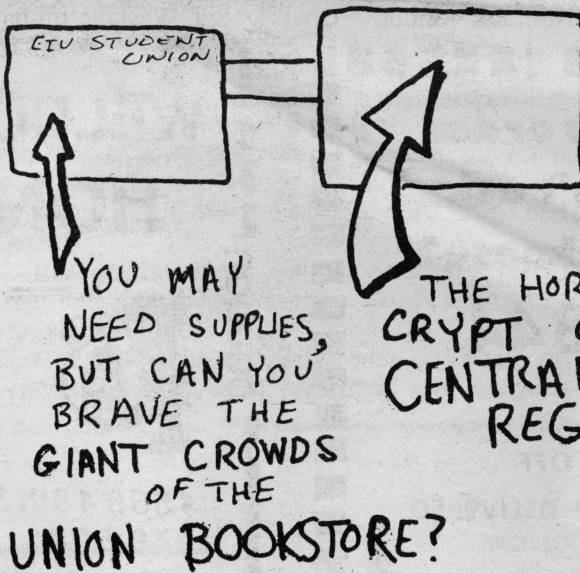 EIU STUDENT
UNION
YOU MAY
NEED SUPPLIES,
BUT CAN YOU
BRAVE THE
GIANT CROWDS
OF THE
UNION BOOKSTORE?
THE HOR
CRYPT
CENTRA
REG